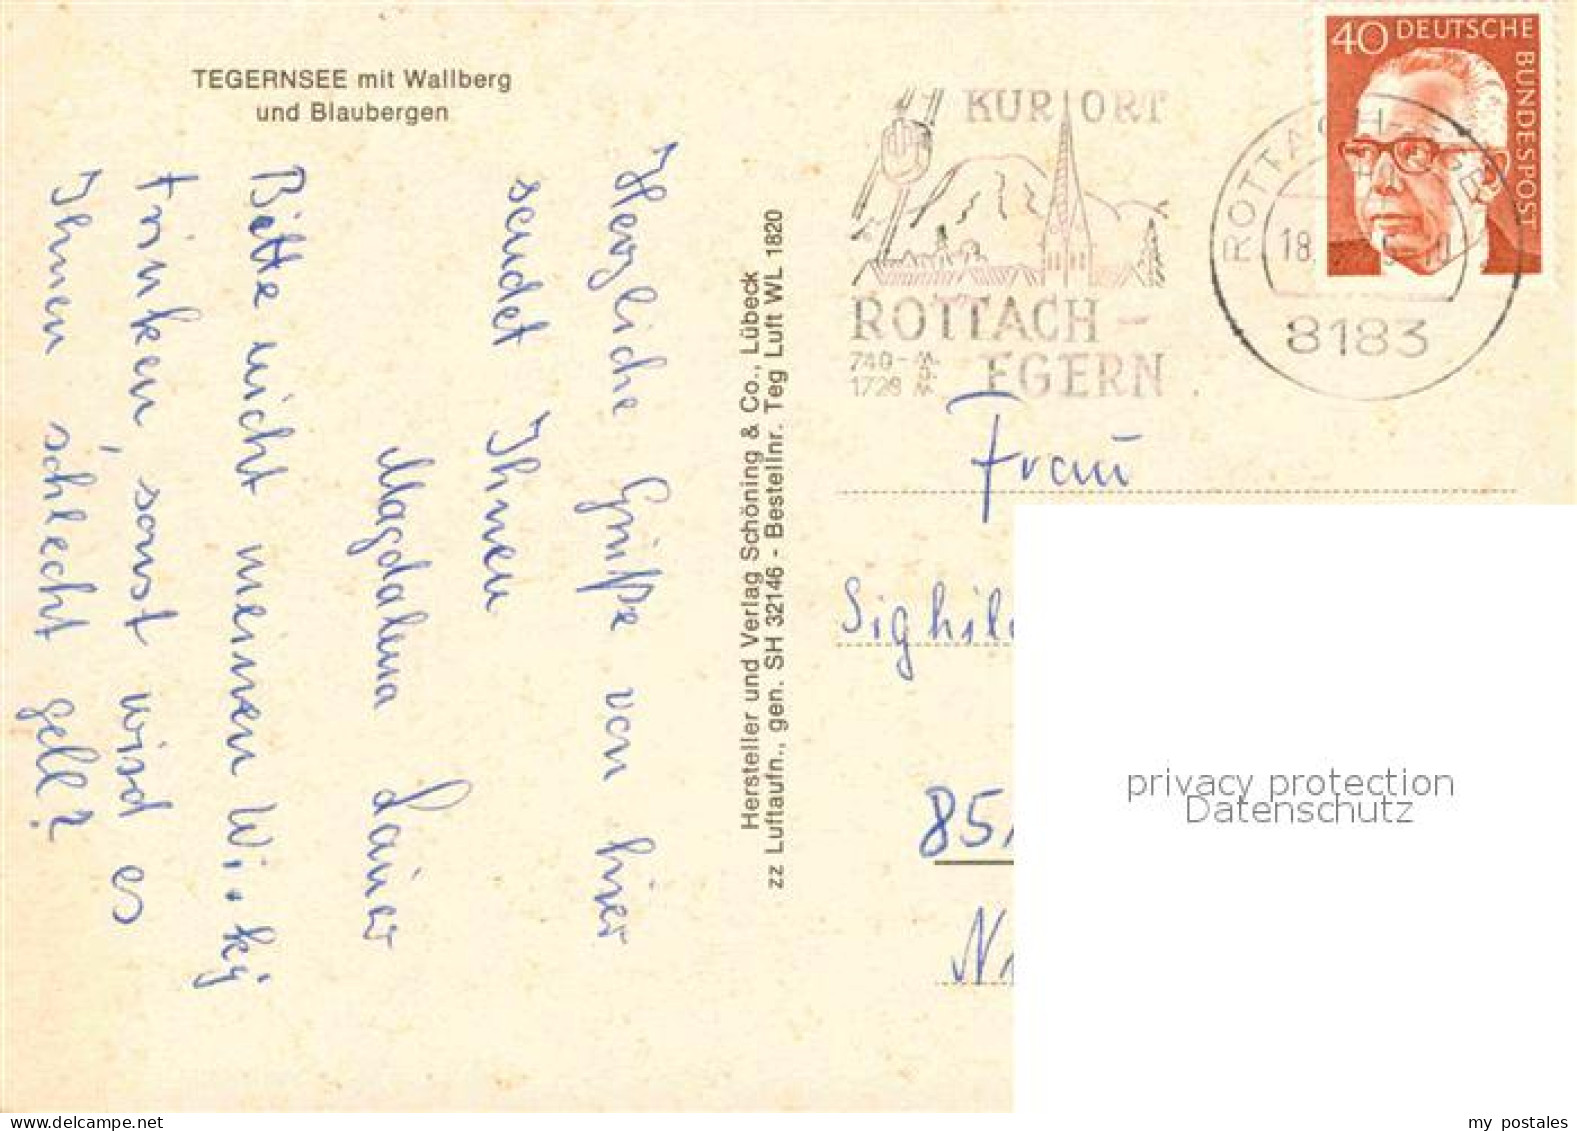 TEGERNSEE mit Wallberg
und Blaubergen
Herzliche Grüße von hier
sendet Ihnen
Magdalena Lainer
Bitte nicht meinen Wisky
trinken, sonst wird es
Ihnen schlecht gell?
Hersteller und Verlag Schöning & Co., Lübeck
zz Luftaufn., gen. SH 32146 - Bestellnr. Teg Luft WL 1820
KURORT
ROTTACH-
EGERN
740-
1728
ROTTACH-EGERN
18
8183
40 DEUTSCHE
BUNDESPOST
Frau
85
privacy protection
Datenschutz
my postales